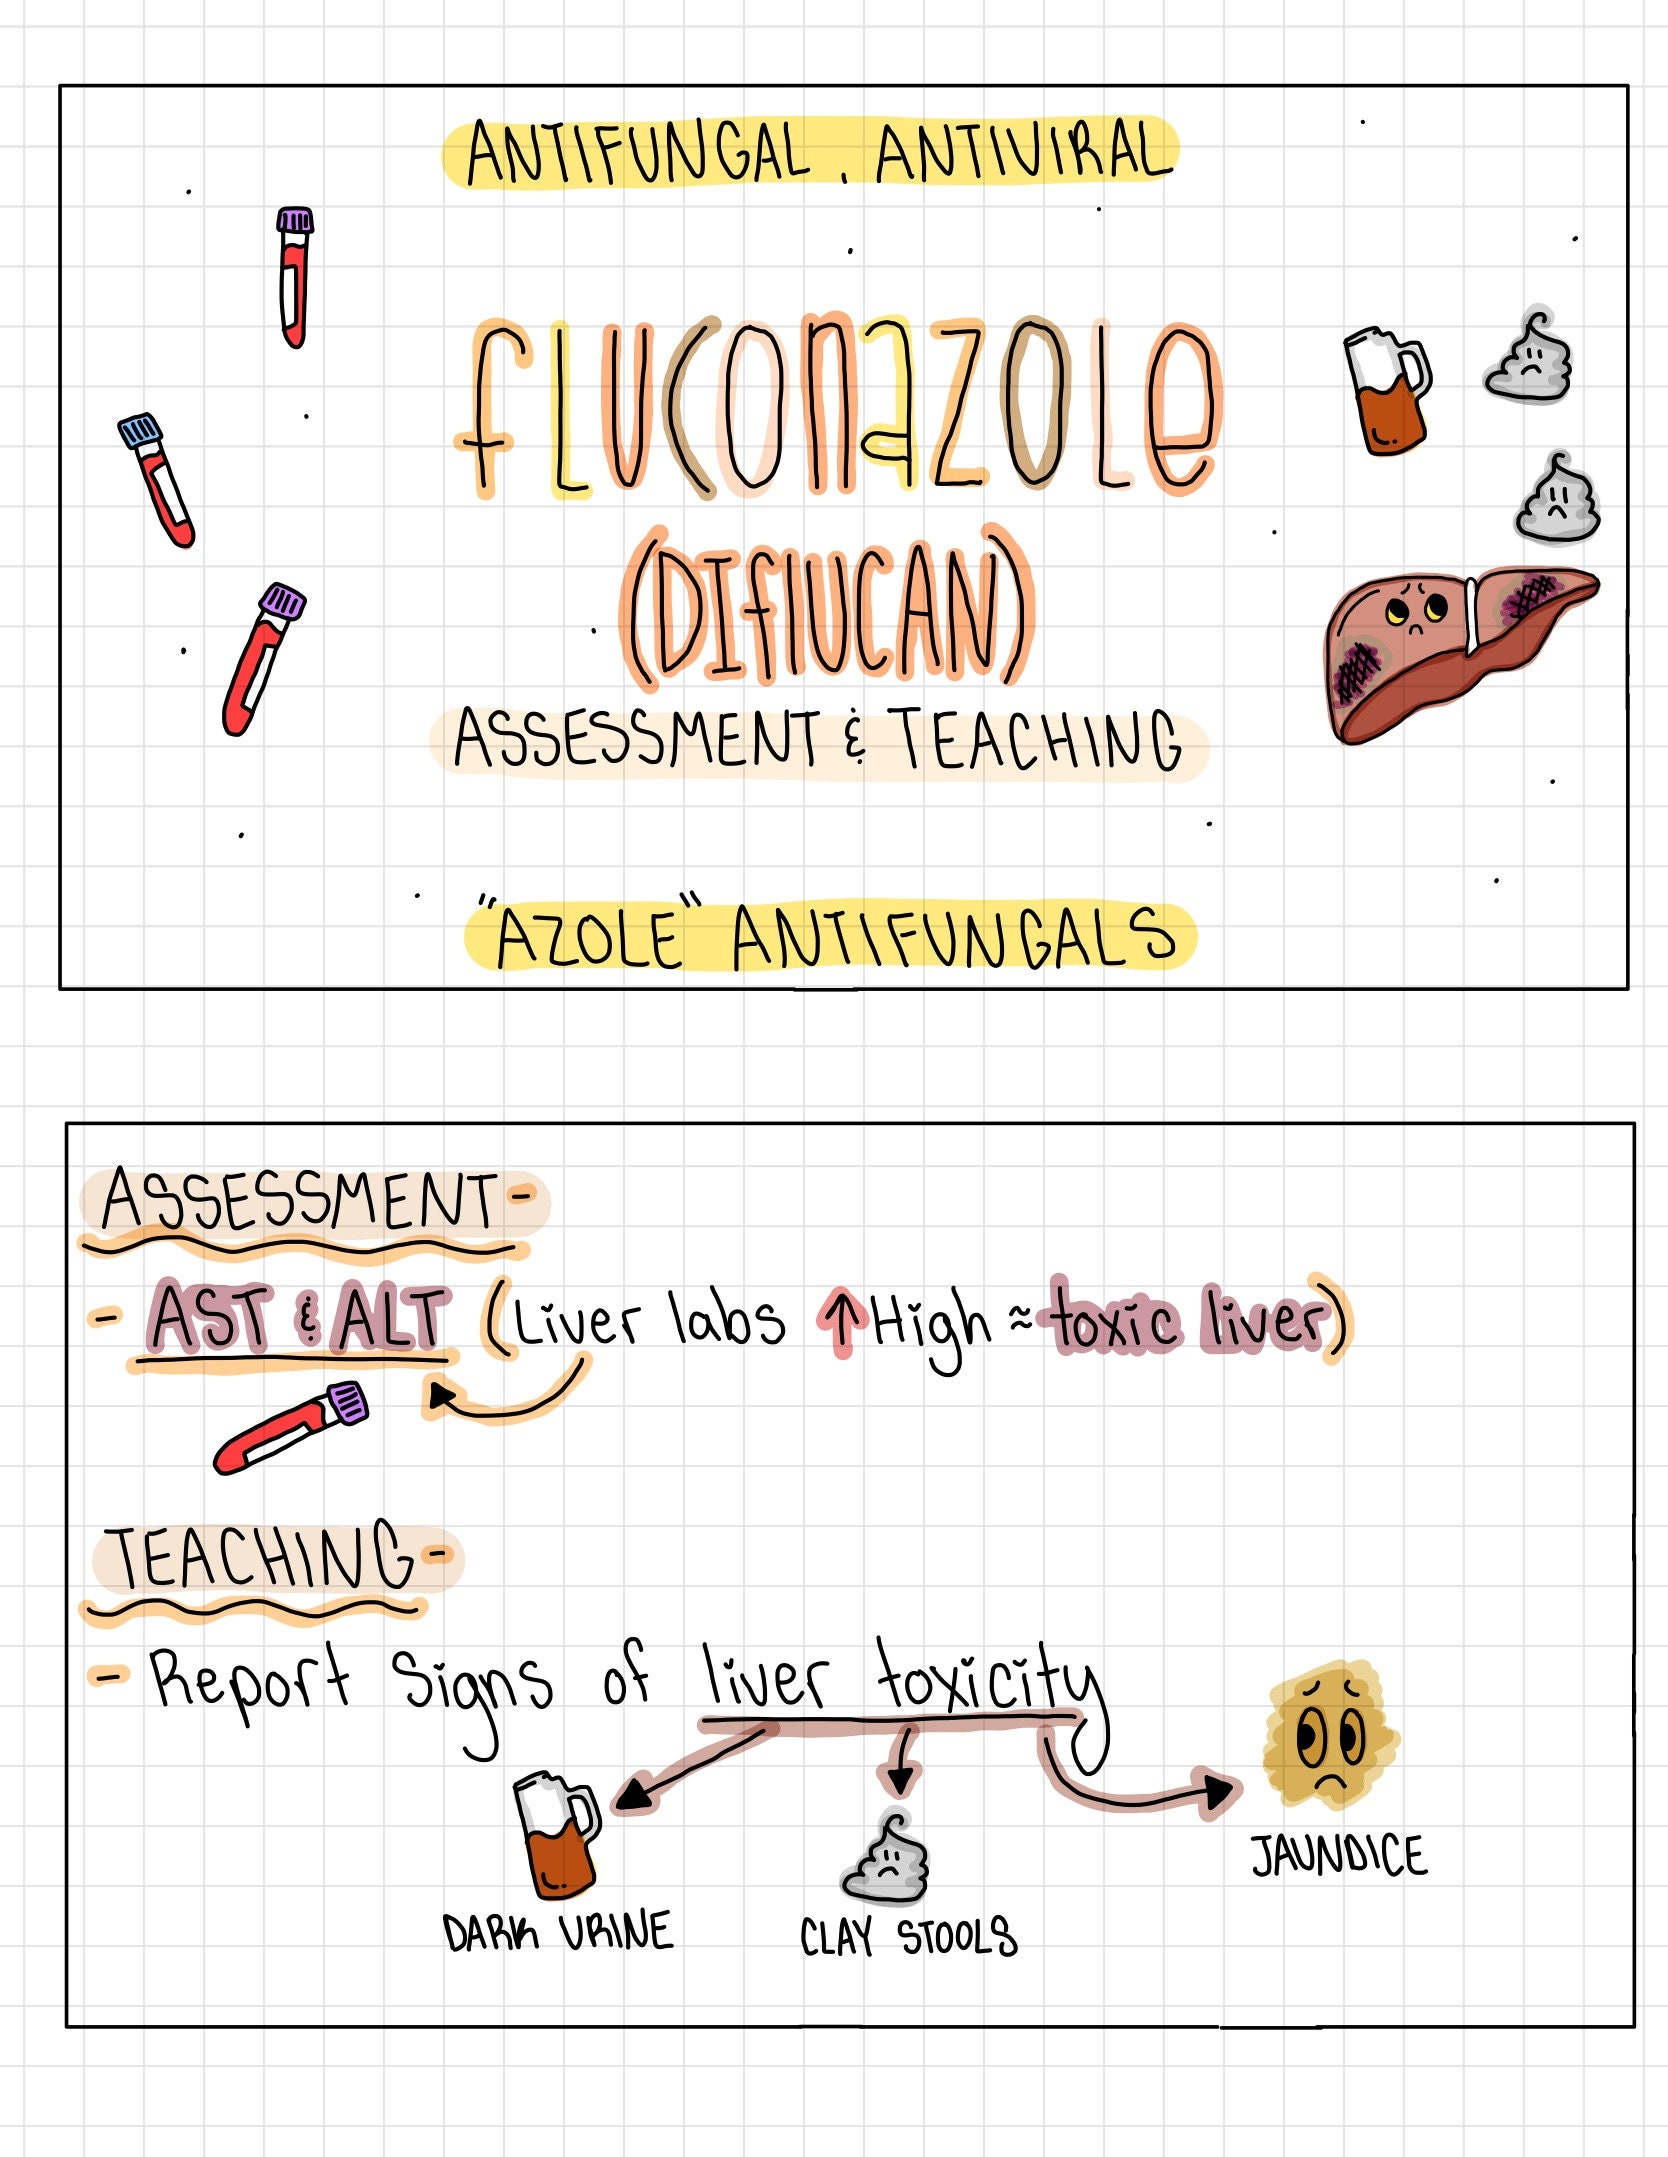 ANTIFUNGAL, ANTIVIRAL
fLUCONaZOLe
(DIflUCAN)
ASSESSMENT & TEACHING
"AZOLE" ANTIFUNGALS
ASSESSMENT-
- AST & ALT (Liver labs ↑ High ≈ toxic liver)
TEACHING-
- Report Signs of liver toxicity
JAUNDICE
DARK URINE
CLAY STOOLS